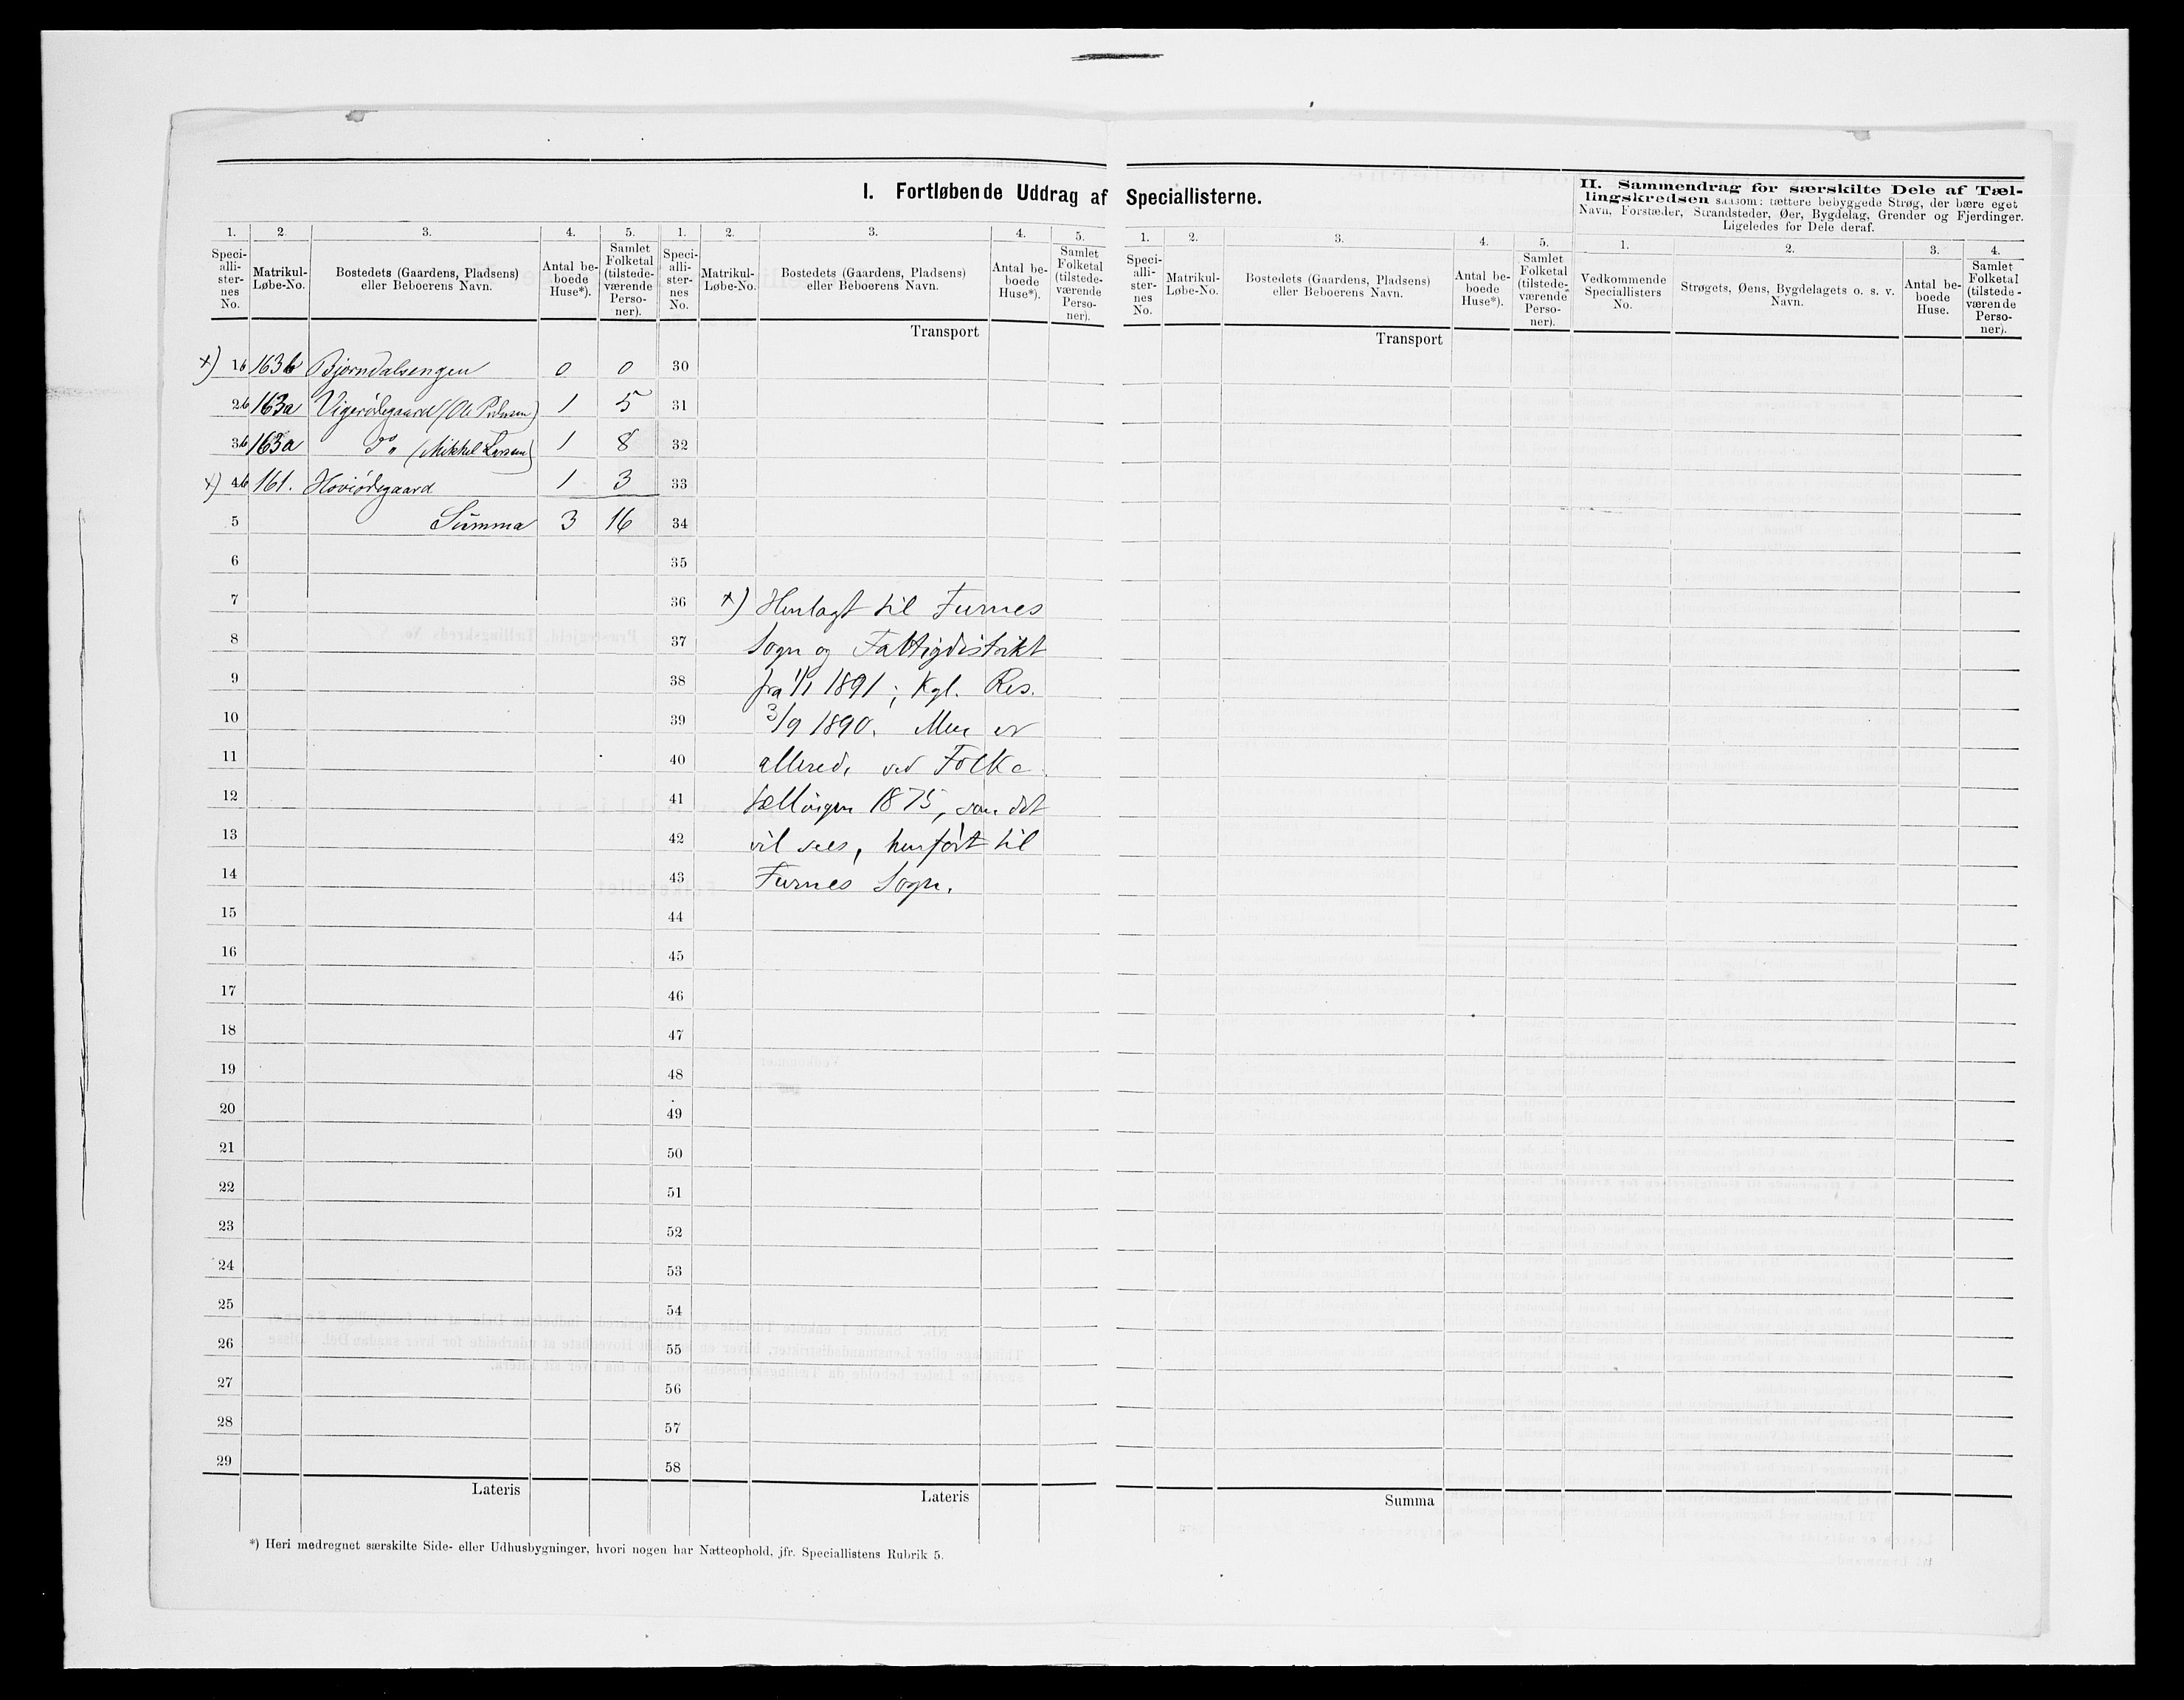 I. Fortløbende Uddrag af Speciallisterne.
II. Sammendrag for særskilte Dele af Tæl-
lingskredsen saasom: tættere bebyggede Strøg, der bære eget
Navn, Forstæder, Strandsteder, Øer, Bygdelag, Grender og Fjerdinger.
Ligeledes for Dele deraf.
1. 2. 3. 4. 5. 1. 2. 3. 4. 5. 1. 2. 3. 4. 5. 1. 2. 3. 4.
Speci-
alli-
ster-
nes
No.
Matrikul-
Løbe-No.
Bostedets (Gaardens, Pladsens)
eller Beboerens Navn.
Antal be-
boede
Huse*).
Samlet
Folketal
(tilstede-
værende
Perso-
ner).
Speci-
alli-
ster-
nes
No.
Matrikul-
Løbe-No.
Bostedets (Gaardens, Pladsens)
eller Beboerens Navn.
Antal be-
boede
Huse*).
Samlet
Folketal
(tilstede-
værende
Perso-
ner).
Speci-
alli-
ster-
nes
No.
Matrikul-
Løbe-No.
Bostedets (Gaardens, Pladsens)
eller Beboerens Navn.
Antal be-
boede
Huse*).
Samlet
Folketal
(tilstede-
værende
Perso-
ner).
Vedkommende
Speciallisters
No.
Strøgets, Øens, Bygdelagets o. s. v.
Navn.
Antal be-
boede
Huse.
Samlet
Folketal
(tilstede-
værende
Perso-
ner).
Transport
Transport
x) 1b 163b Bjørndalsengen 0 0 30
2b 163a Vigerødegaard (Ole Pedersen) 1 5 31
3b 163a Do (Mikkel Larsen) 1 8 32
x) 4b 161. Hoviødegaard 1 3 33
5 Summa 3 16 34
6 35
7 36 x) Henlagt til Furnes
8 37 Sogn og Fattigdistrikt
9 38 fra 1/1 1891; Kgl. Res.
10 39 3/9 1890. Men er
11 40 allerede ved Folke
12 41 tællingen 1875, som det
13 42 vil sees, henført til
14 43 Furnes Sogn.
15 44
16 45
17 46
18 47
19 48
20 49
21 50
22 51
23 52
24 53
25 54
26 55
27 56
28 57
29 58
Lateris
Lateris
Summa
*) Heri medregnet særskilte Side- eller Udhusbygninger, hvori nogen har Natteophold, jfr. Speciallistens Rubrik 5.